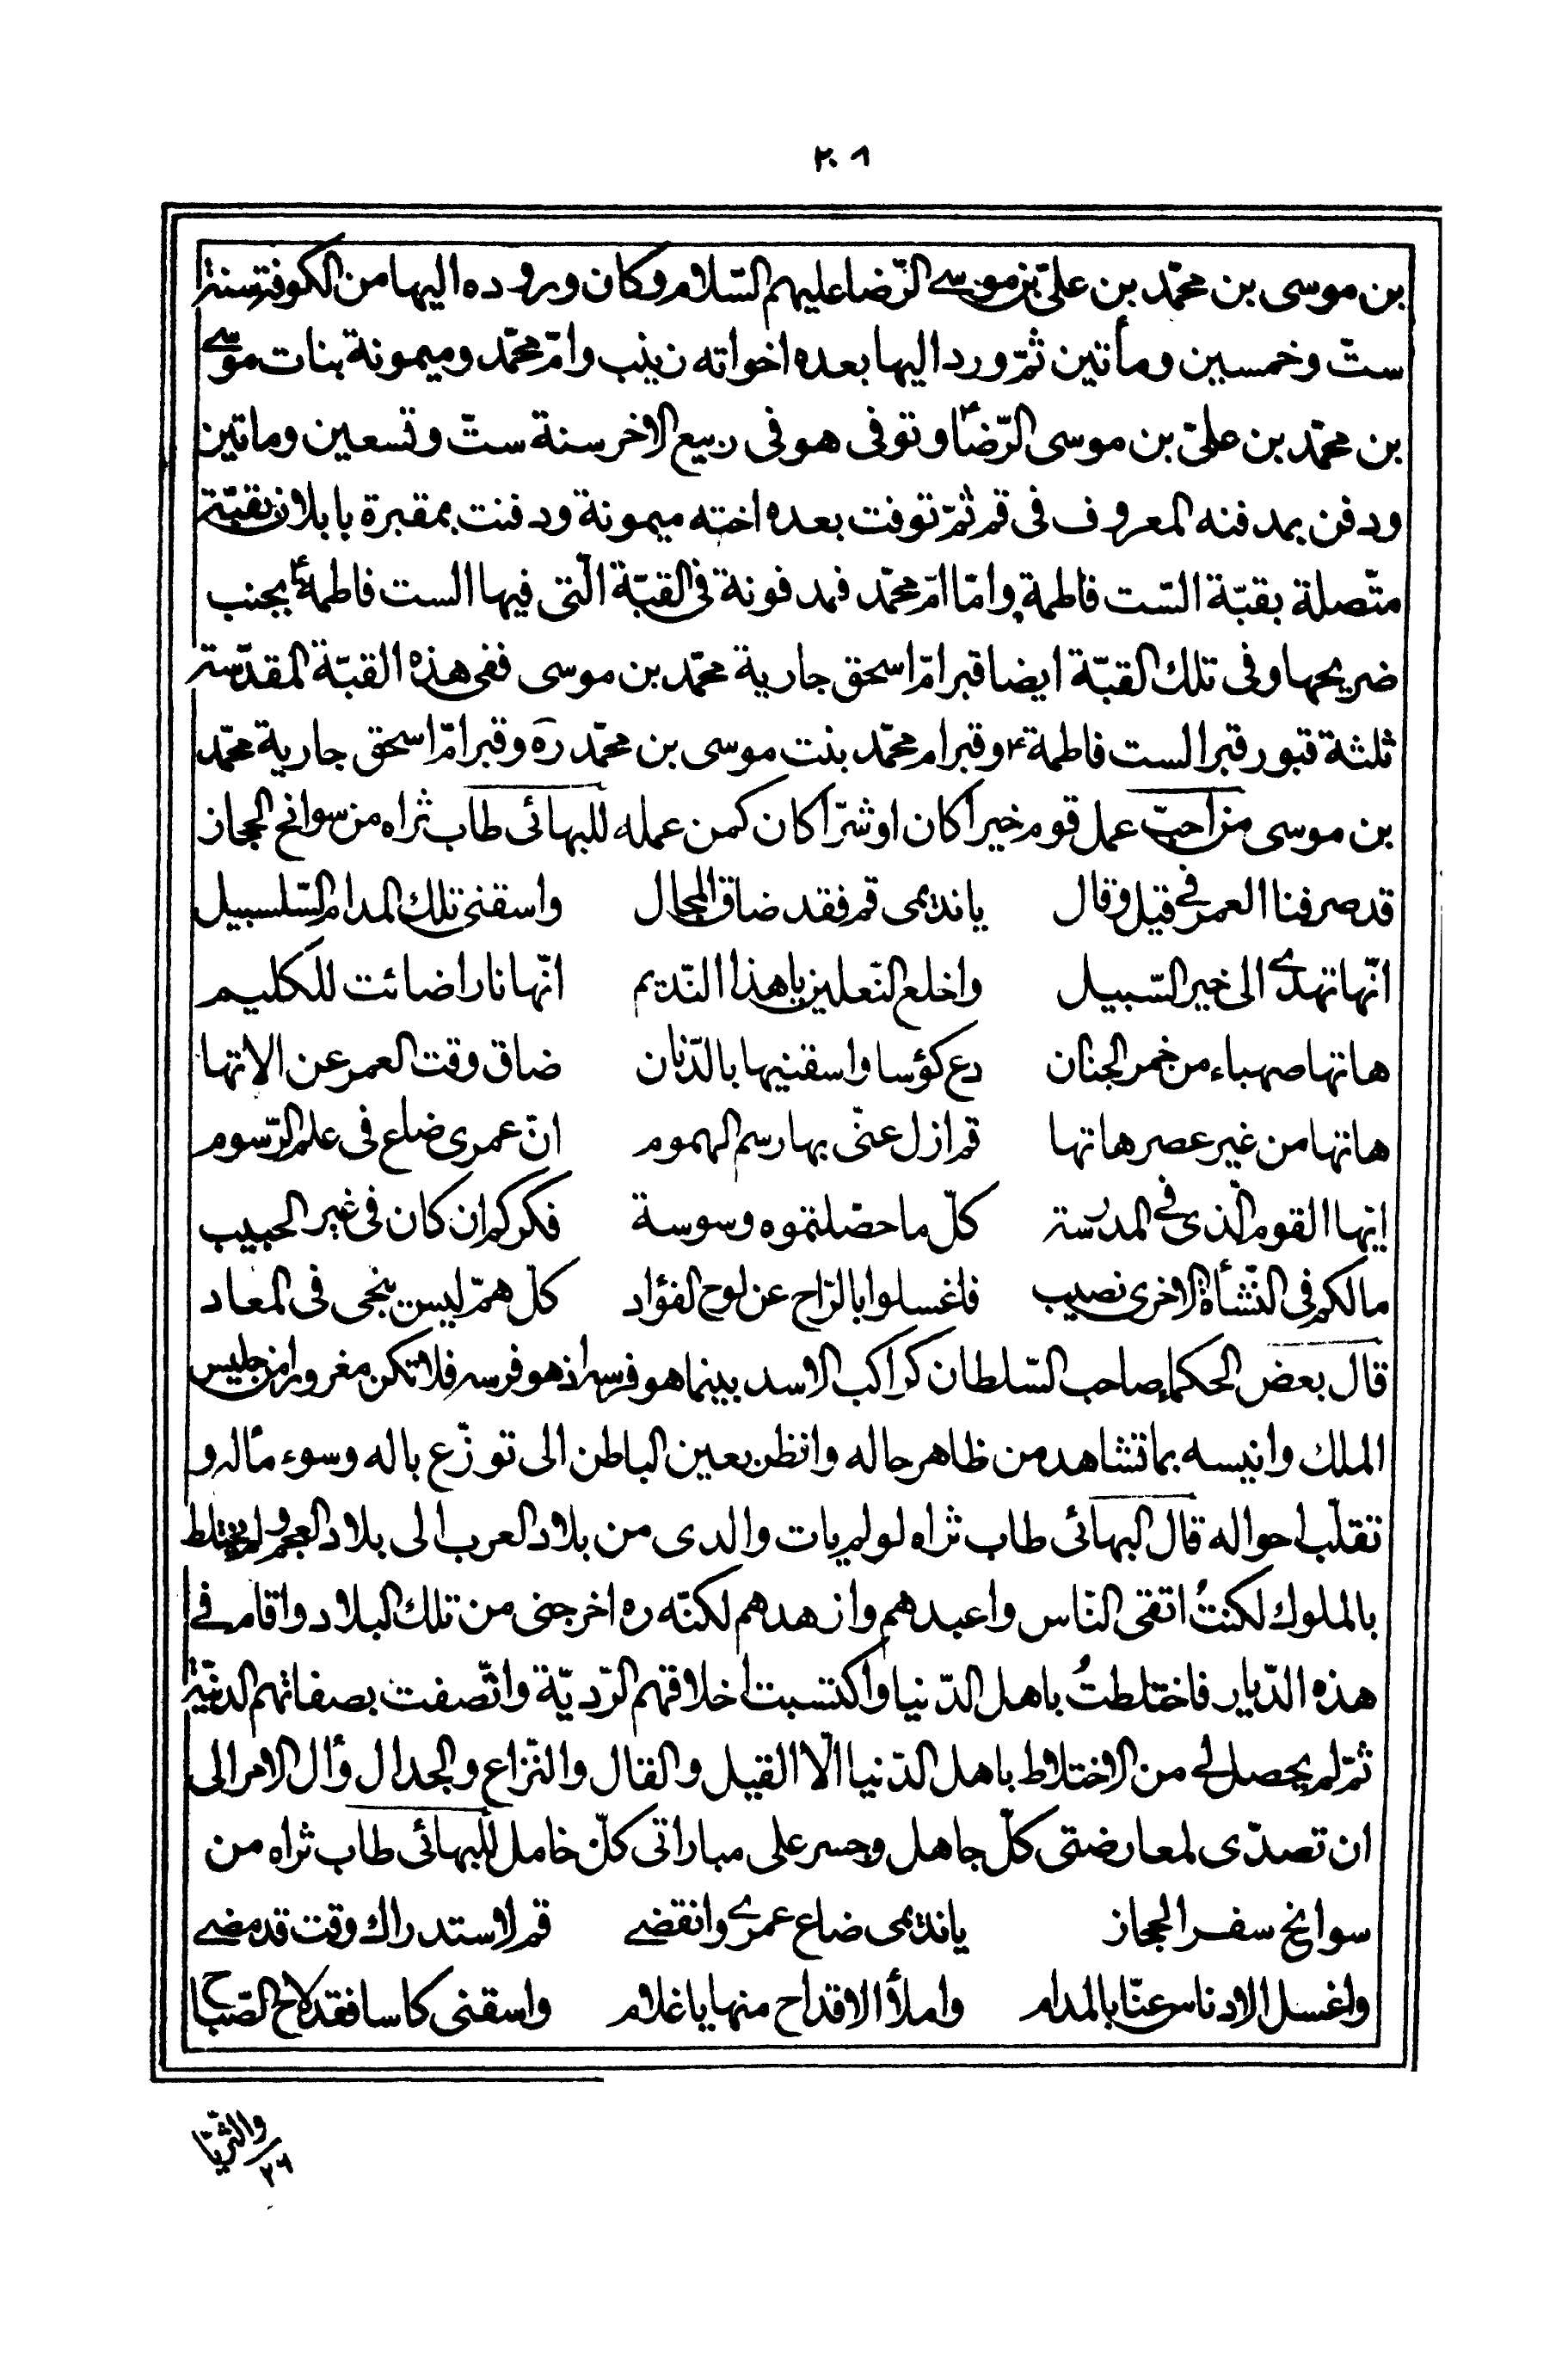 ٢٠١
بن موسى بن محمّد بن علىّ بن موسى الرّضا عليهم السّلام وكان وروده اليها من الكوفة سنة
ستّ وخمسين ومأتين ثمّ ورد اليها بعده اخواته زينب وامّ محمّد وميمونة بنات موسى
بن محمّد بن علىّ بن موسى الرّضاء وتوفى هو فى ربيع الاخر سنة ستّ وتسعين وماتين
ودفن بمدفنه المعروف فى قم ثمّ توفت بعده اخته ميمونة ودفنت بمقبرة بابلان بقبّة
متّصلة بقبّة السّت فاطمة وامّا امّ محمّد فمدفونة فى القبّة الّتى فيها الست فاطمة ع بجنب
ضريحها وفى تلك القبّة ايضا قبر امّ اسحق جارية محمّد بن موسى ففى هذه القبّة المقدّسة
ثلثة قبور قبر الست فاطمة ع وقبر ام محمّد بنت موسى بن محمّد ره وقبر امّ اسحق جارية محمّد
بن موسى من احبّ عمل قوم خيرا كان او شرّا كان كمن عمله للبهائى طاب ثراه من سوانح الحجاز
قد صرفنا العمر فى قيل وقال يا نديمى قم فقد ضاق المجال واسقنى تلك المدام السّلسبيل
انّها تهدى الى خير السّبيل واخلع النّعلين يا هذا النّديم انّها نار اضائت للكليم
هاتها صهباء من خمر الجنان دع كؤسا واسقنيها بالدّنان ضاق وقت العمر عن الاتها
هاتها من غير عصر هاتها قم ازل عنّى بها رسم الهموم انّ عمرى ضاع فى علم الرّسوم
ايها القوم الّذى فى المدرسة كلّ ما حصّلتموه وسوسة فكركم ان كان فى غير الحبيب
مالكم فى النّشأة الاخرى نصيب فاغسلوا بالرّاح عن لوح الفؤاد كلّ همّ ليس ينجى فى المعاد
قال بعض الحكماء صاحب السّلطان كراكب الاسد بينما هو فرسه اذ هو فرسه فلا تكن مغرورا من جليس
الملك وانيسه بما تشاهد من ظاهر حاله وانظر بعين الباطن الى توزّع باله وسوء مأله و
تقلّب احواله قال البهائى طاب ثراه لو لم يات والدى من بلاد العرب الى بلاد العجم ولم يختلط
بالملوك لكنتُ اتقى النّاس واعبدهم وازهدهم لكنّه ره اخرجنى من تلك البلاد واقام فى
هذه الدّيار فاختلطتُ باهل الدّنيا واكتسبت اخلاقهم الرّديّة واتّصفت بصفاتهم الدنيّة
ثمّ لم يحصل لى من الاختلاط باهل الدّنيا الّا القيل والقال والنّزاع والجدال وأل الامر الى
ان تصدّى لمعارضتى كلّ جاهل وجسر على مباراتى كلّ خامل للبهائى طاب ثراه من
سوانح سفر الحجاز يا نديمى ضاع عمرى وانقضى قم لاستدراك وقت قد مضى
واغسل الادناس عنّا بالمدام واملأ الاقداح منها يا غلام واسقنى كاسا فقد لاح الصّباح
والثّريّا
٢٦